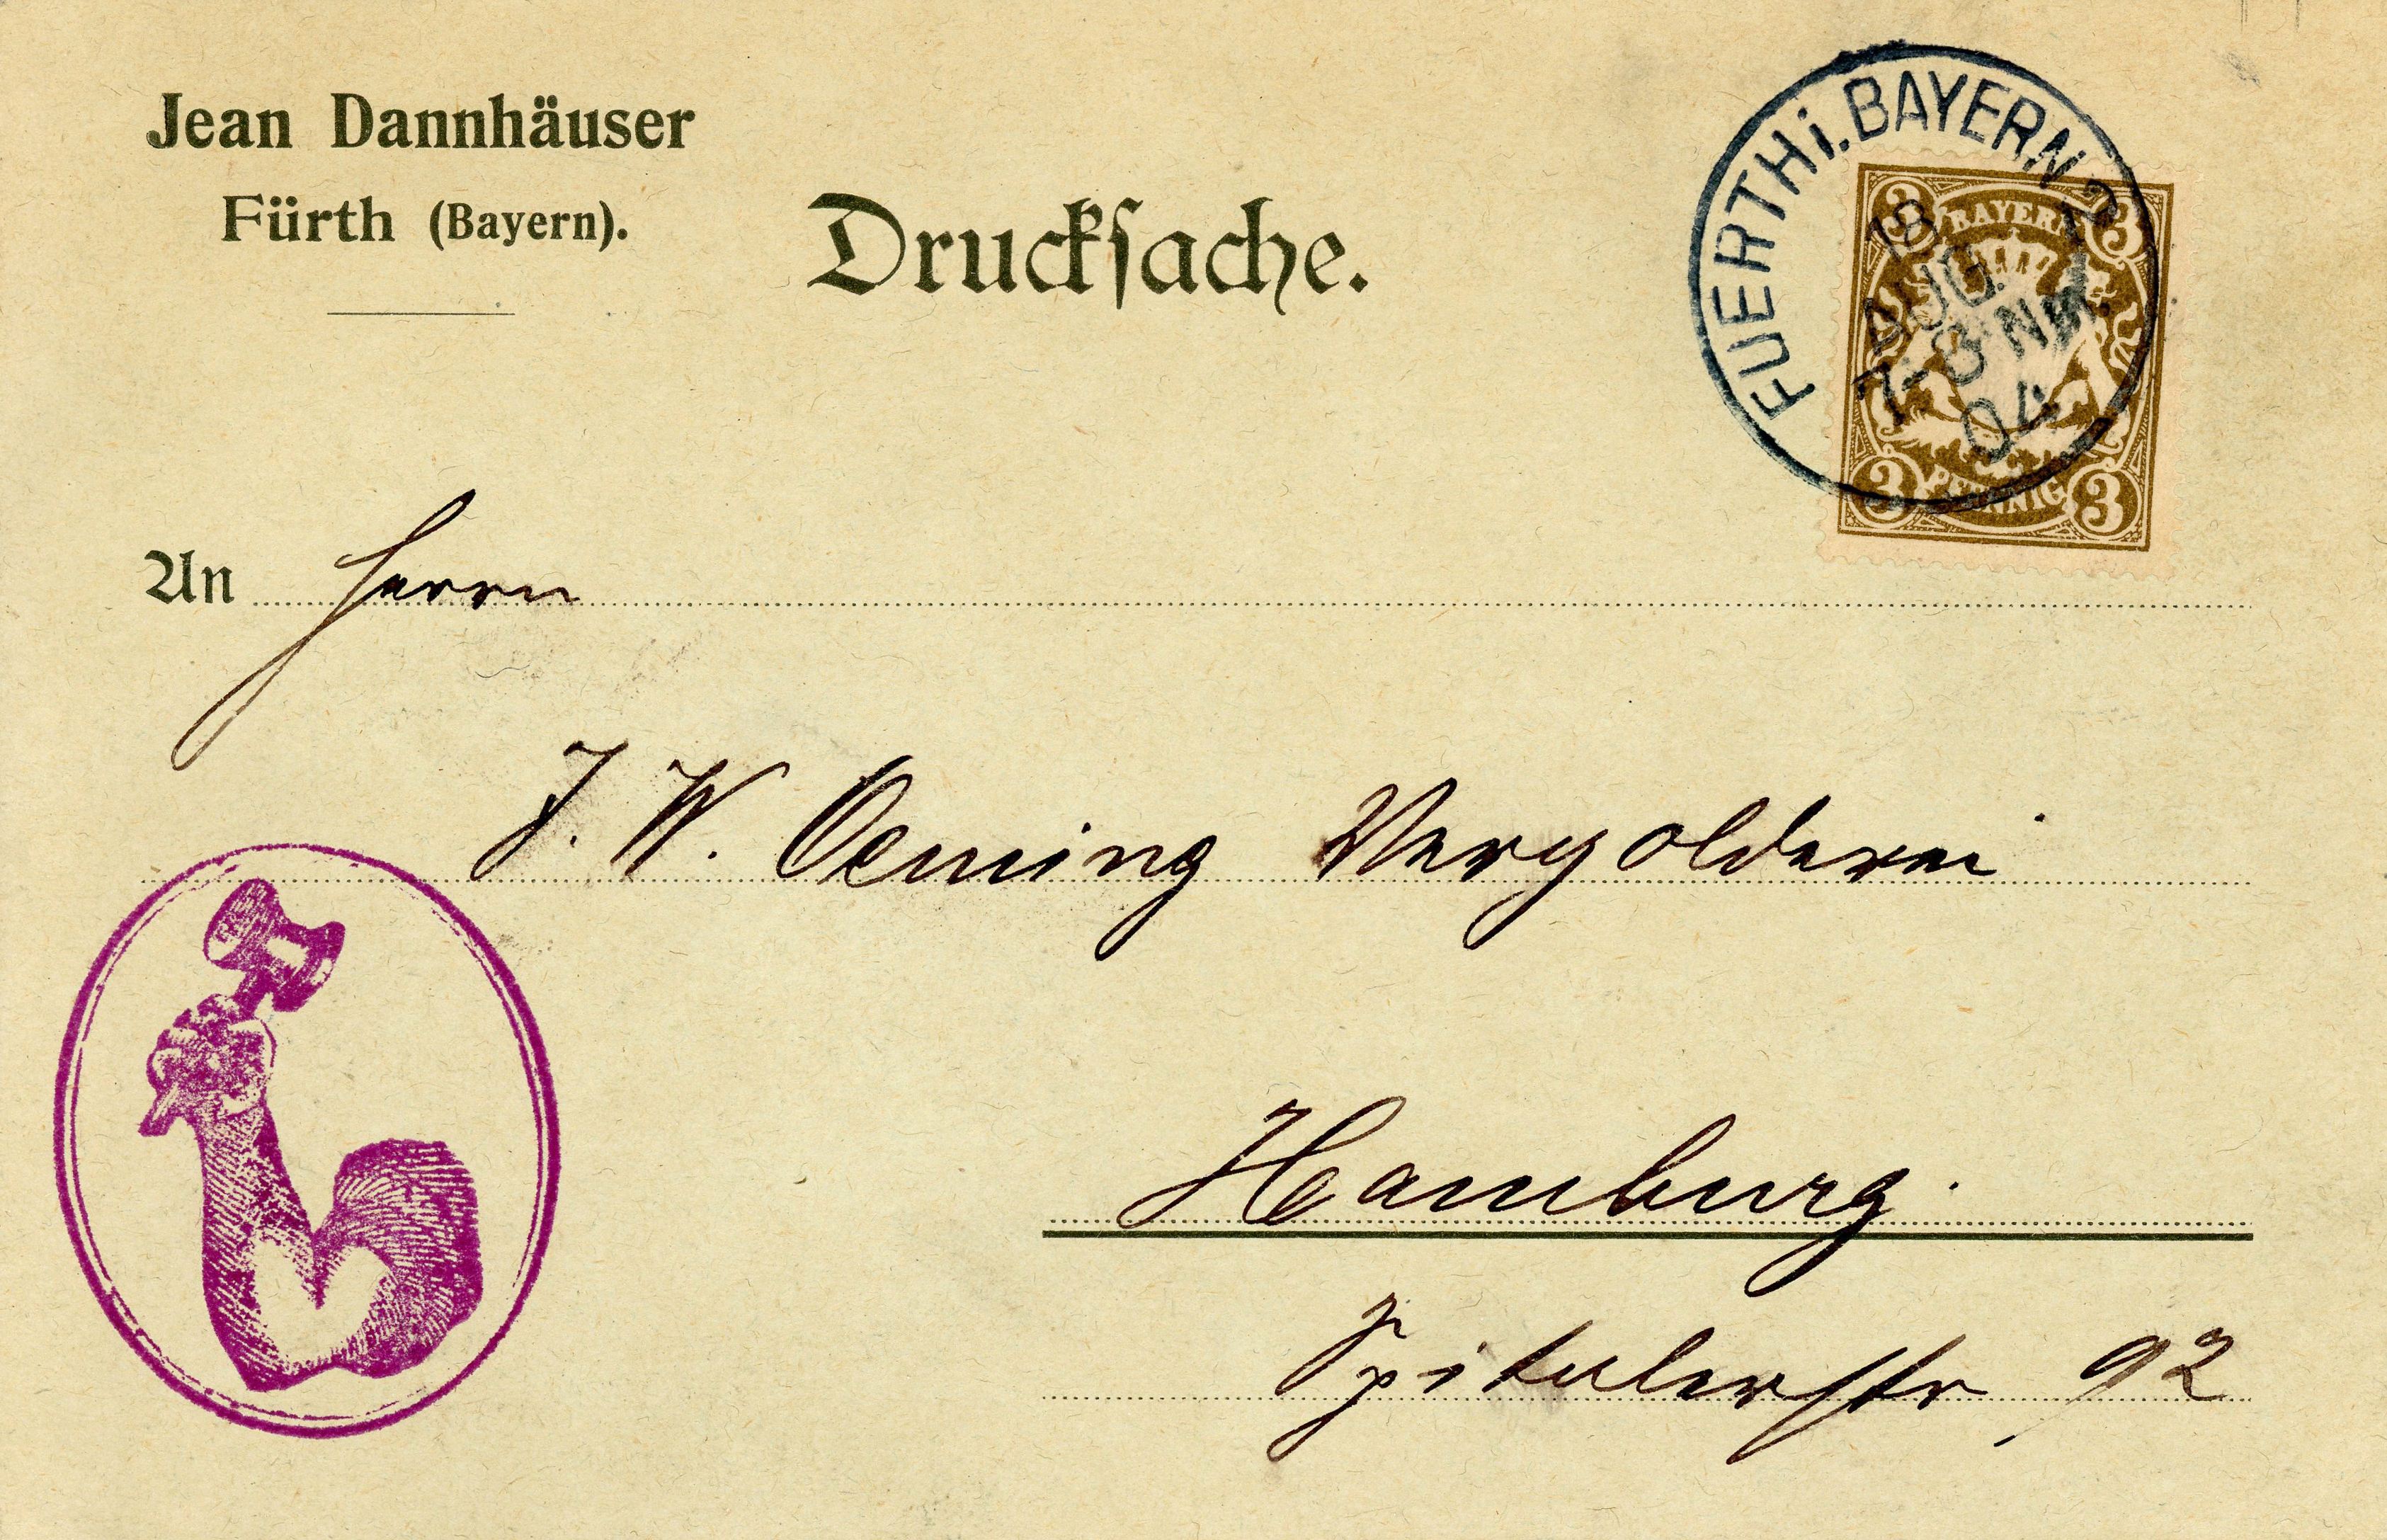 Jean Dannhäuser
Fürth (Bayern).
Druckſache.
FUERTH i. BAYERN 2
18
AUG.
7-8 NM.
04
3 BAYERN 3
3 PFENNIG 3
An Herrn
J. W. Oeming Vergolderei
Hamburg.
Spitalerstr 92